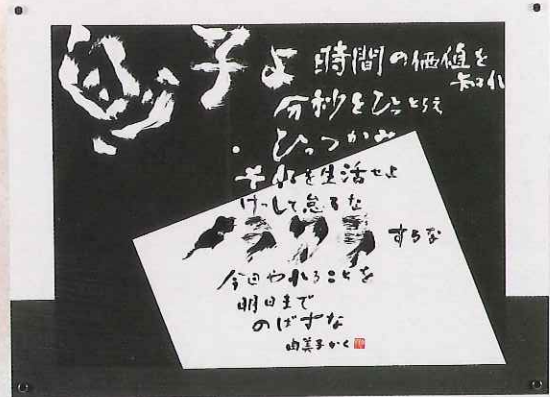 息子よ 時間の価値を
知れ
分秒をひっとらえ
ひっつかみ
それを生活せよ
けっして怠るな
ノラクラするな
今日やれることを
明日まで
のばすな
由美子かく